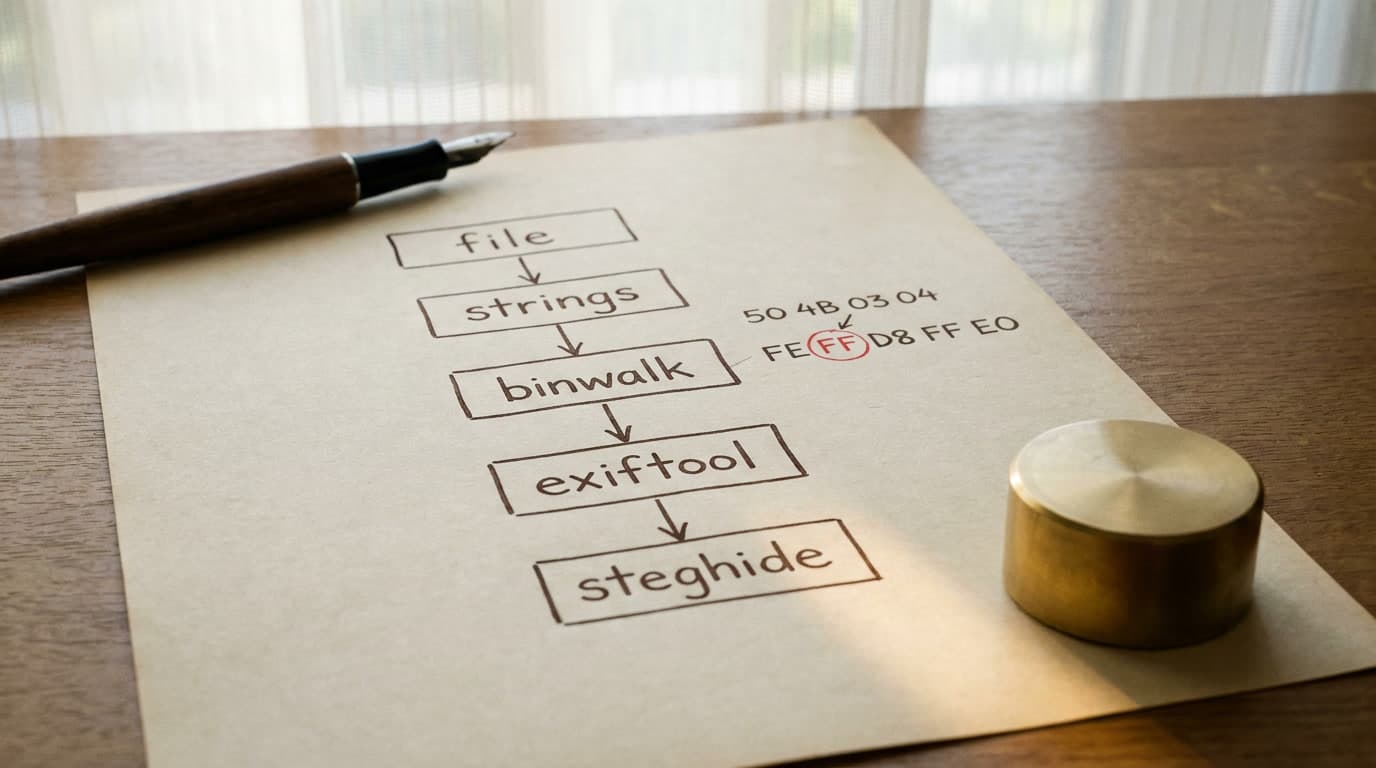 file
strings
50 4B 03 04
binwalk
FE FF D8 FF E0
exiftool
steghide